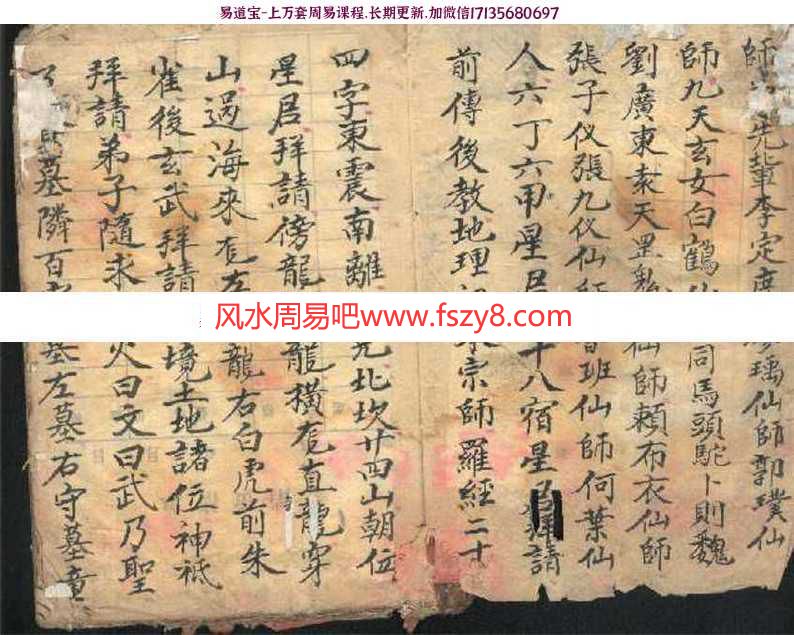 易道宝-上万套周易课程.长期更新.加微信17135680697
師 先輩李定度 瑀仙師郭璞仙
師九天玄女白鶴仙 司馬頭駝卜則魏
劉廣東袁天罡 仙師賴布衣仙師
張子仪張九仪仙師 班仙師何葉仙
人六丁六甲星居 十八宿星 拜請
前傳後教地理 宗師羅經二十
四字東震南離 兑北坎廿四山朝位
星居拜請傍龍 龍橫龍直龍穿
山過海來龍左 龍右白虎前朱
雀後玄武拜請 境土地諸位神祇
拜請弟子隨求 火曰文曰武乃聖
墓隣百 墓左墓右守墓童
风水周易吧www.fszy8.com